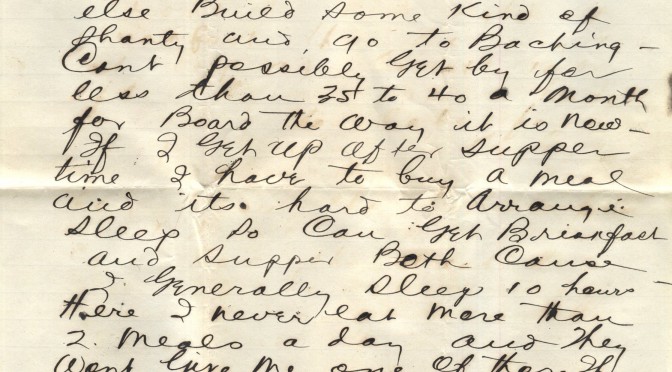 else Build some Kind of
shanty and go to Baching -
Cant possibly Get by for
less than 35 to 40 a Month
for Board the way it is now -
If I Get Up After supper
time I have to buy a meal
and its hard to Arrange
Sleep So Can Get Breakfast
and supper Both Cause
I Generally Sleep 10 hours -
Here I never eat More than
2 Meals a day and They
Wont Give Me one of those If